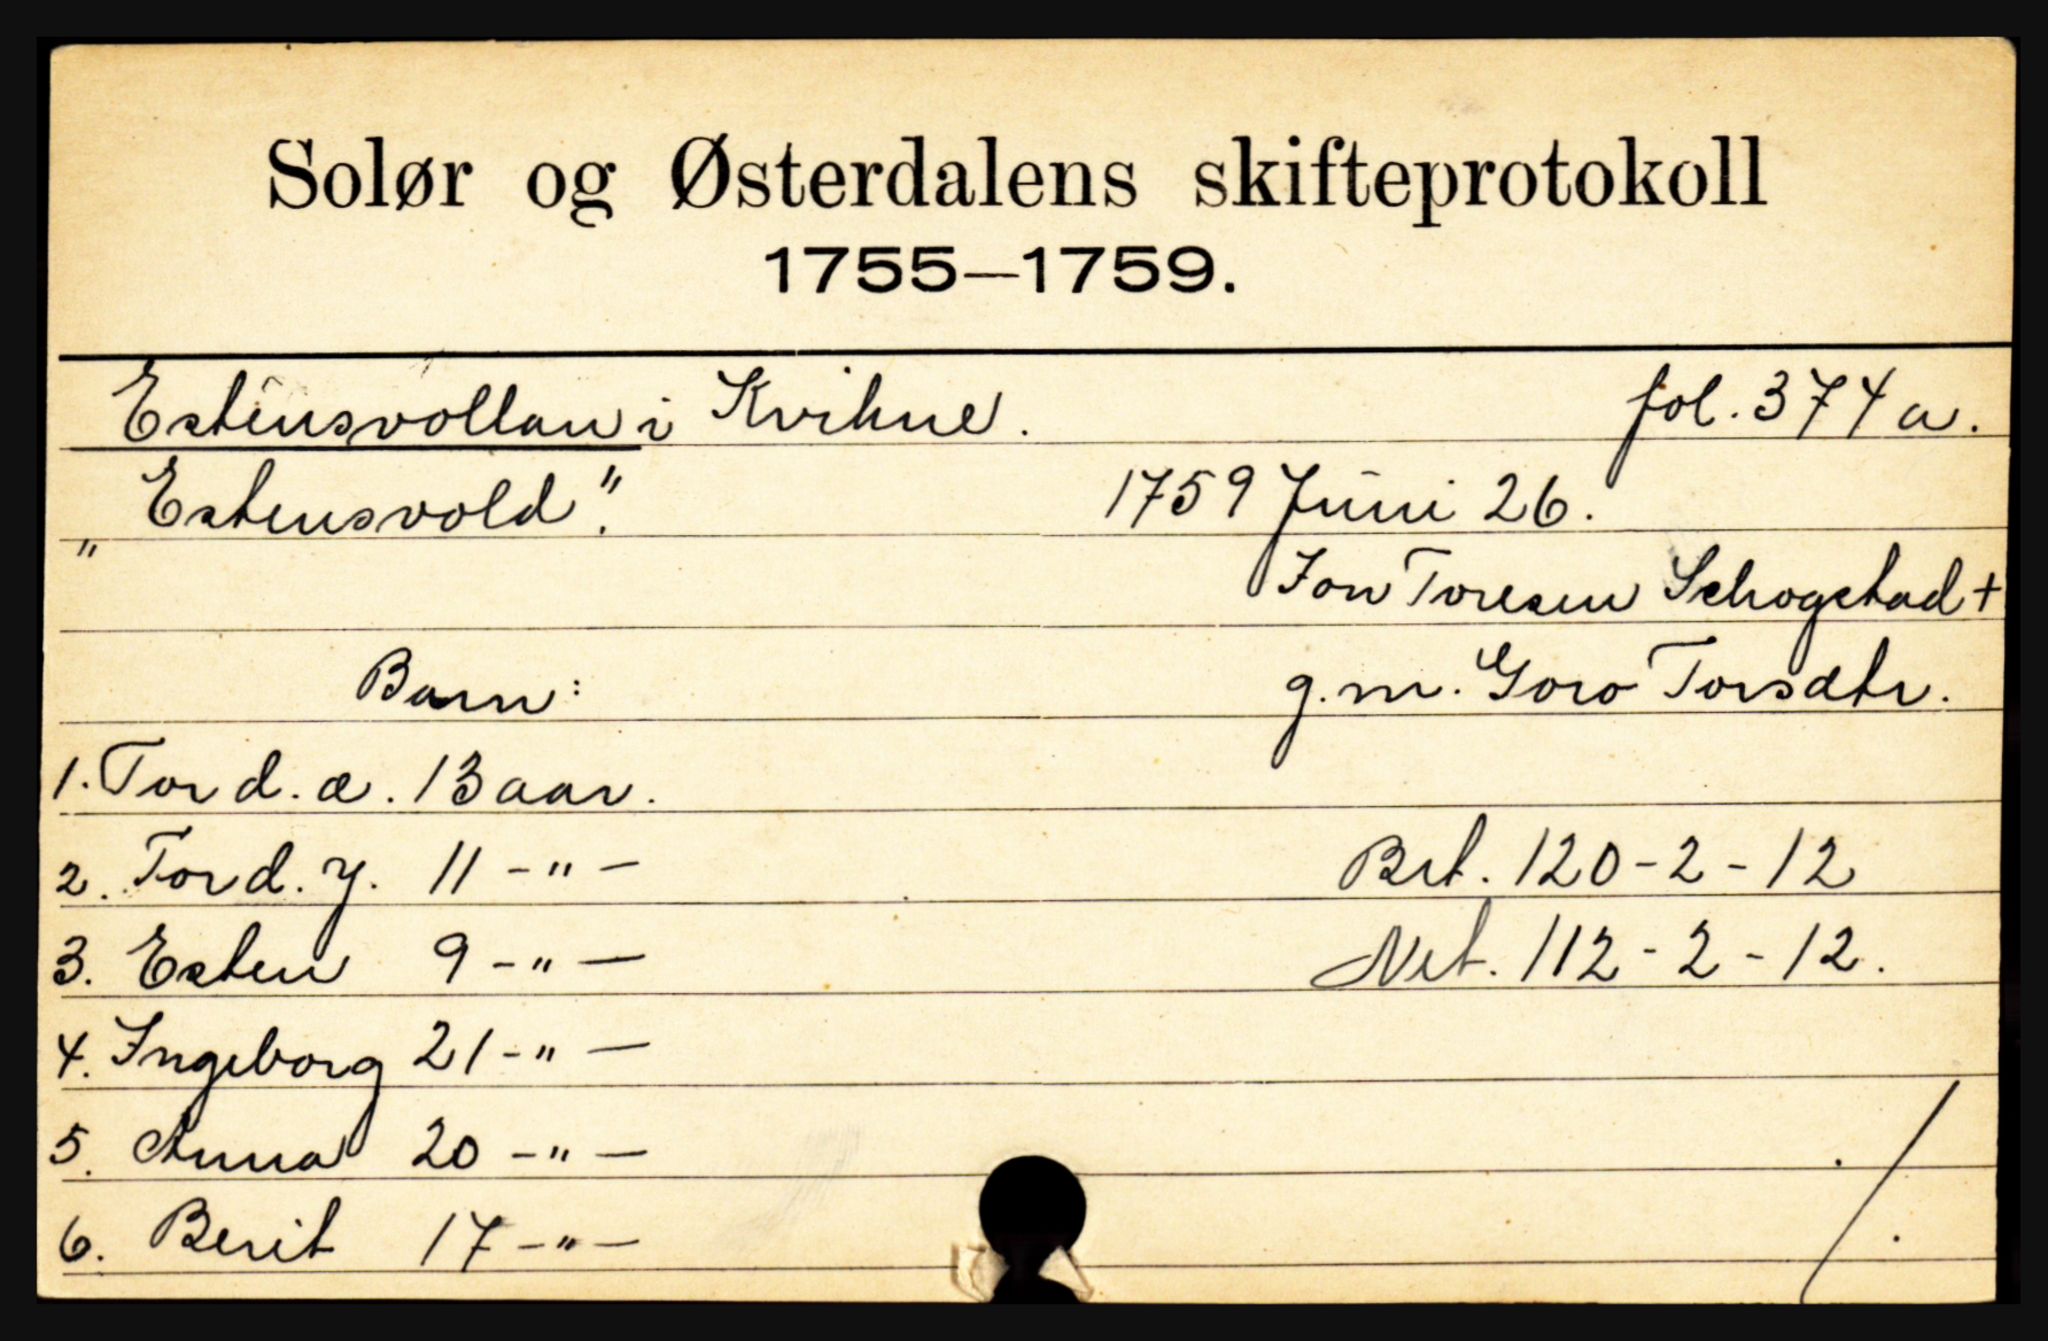 Solør og Østerdalens skifteprotokoll
1755—1759.
Estensvollan i Kvikne. fol. 374 a.
„Estensvold". 1759 Juni 26.
Jon Toresen Schogstad +
Barn: g.m. Goro Torsdtr.
1. Tor d. æ. 13 aar.
2. Tor d. y. 11 -"- Brt. 120-2-12
3. Esten 9 -"- Net. 112-2-12.
4. Ingeborg 21 -"-
5. Anna 20 -"-
6. Berit 17 -"-